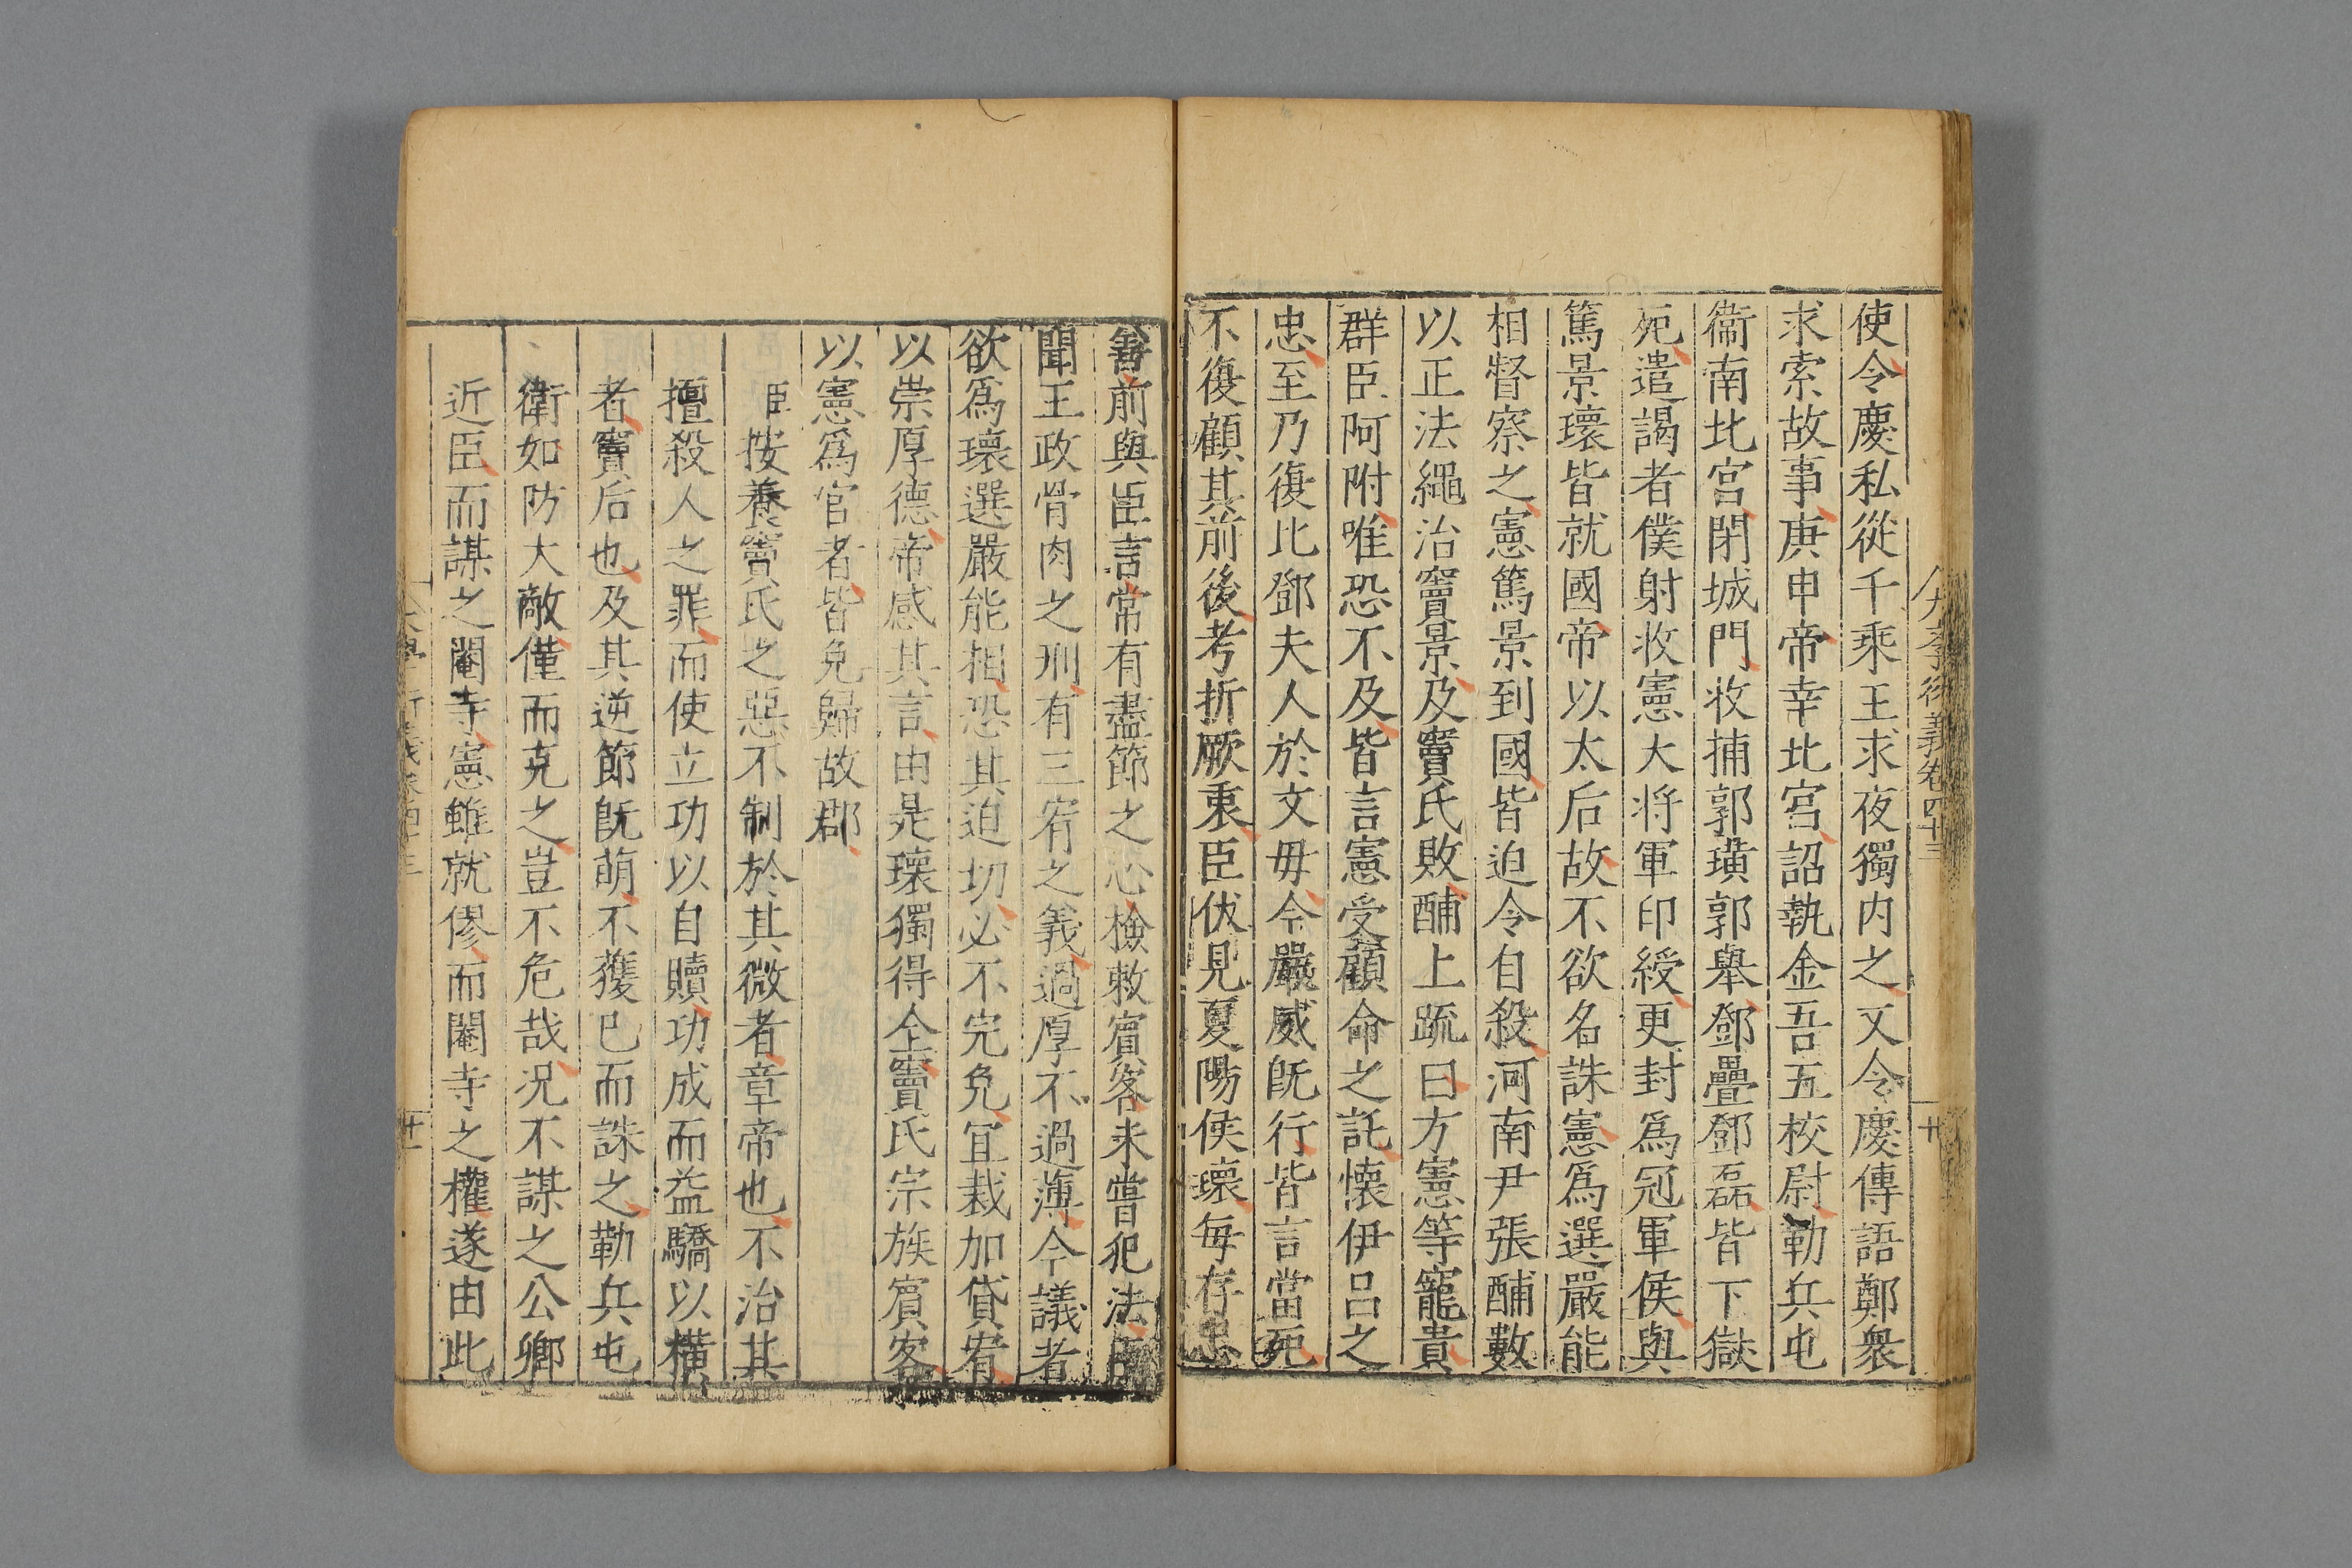 大學衍義卷四十三
十
使令慶私從千乘王求夜獨內之又令慶傳語鄭衆
求索故事庚申帝幸北宮詔執金吾五校尉勒兵屯
衞南北宮閉城門收捕郭璜郭舉鄧疊鄧磊皆下獄
死遣謁者僕射收憲大將軍印綬更封爲冠軍侯與
篤景瓌皆就國帝以太后故不欲名誅憲爲選嚴能
相督察之憲篤景到國皆迫令自殺河南尹張酺數
以正法繩治竇景及竇氏敗酺上疏曰方憲等寵貴
群臣阿附唯恐不及皆言憲受顧命之託懷伊呂之
忠至乃復比鄧夫人於文毋今嚴威旣行皆言當死
不復顧其前後考折厥衷臣伏見夏陽侯瓌每存忠
善前與臣言常有盡節之心檢敕賓客未嘗犯法臣
聞王政骨肉之刑有三宥之義過厚不過薄今議者
欲爲瓌選嚴能相恐其迫切必不完免宜裁加貸宥
以崇厚德帝感其言由是瓌獨得全竇氏宗族賓客
以憲爲官者皆免歸故郡
臣按養竇氏之惡不制於其微者章帝也不治其
擅殺人之罪而使立功以自贖功成而益驕以橫
者竇后也及其逆節旣萌不獲已而誅之勒兵屯
衛如防大敵僅而克之豈不危哉况不謀之公卿
近臣而謀之閹寺憲雖就僇而閹寺之權遂由此
大學衍義卷四十三
廿一